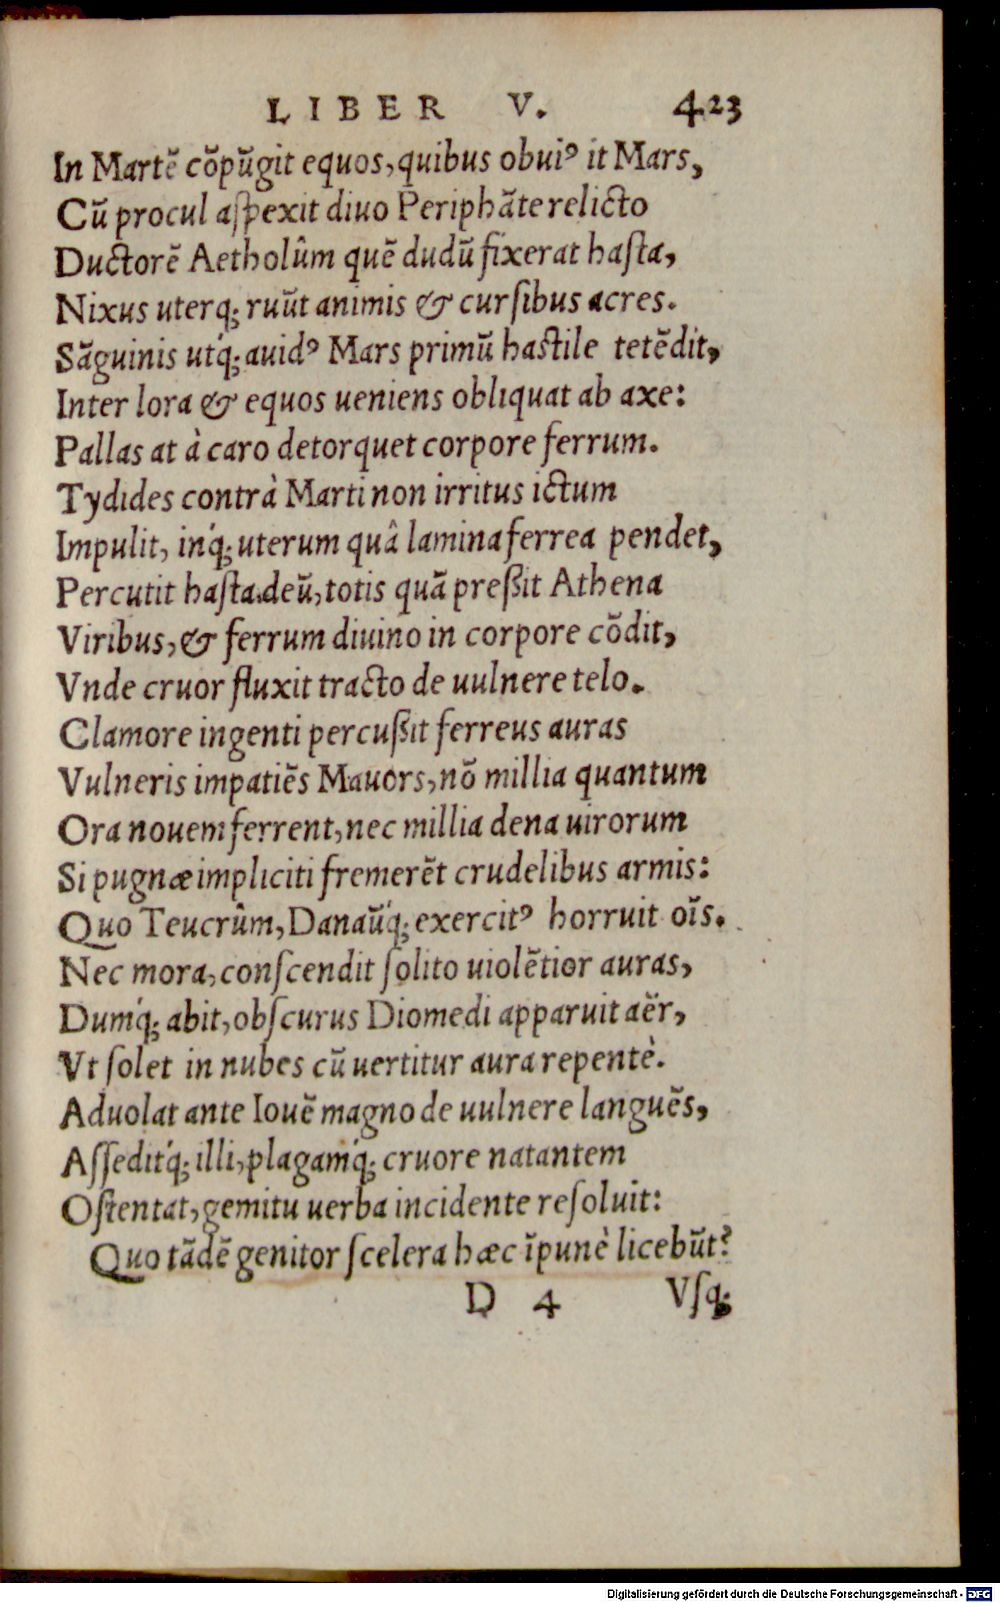 LIBER V. 423
In Martẽ cõpũgit equos, quibus obuiꝰ it Mars,
Cũ procul aſpexit diuo Periphãte relicto
Ductorẽ Aetholûm quẽ dudũ fixerat haſta,
Nixus uterq; ruũt animis & curſibus acres.
Sãguinis utq́; auidꝰ Mars primũ haſtile tetẽdit,
Inter lora & equos ueniens obliquat ab axe:
Pallas at à caro detorquet corpore ferrum.
Tydides contrà Marti non irritus ictum
Impulit, inq́; uterum quâ lamina ferrea pendet,
Percutit haſta deũ, totis quã preßit Athena
Viribus, & ferrum diuino in corpore cõdit,
Vnde cruor fluxit tracto de uulnere telo.
Clamore ingenti percußit ferreus auras
Vulneris impatiẽs Mauors, nõ millia quantum
Ora nouem ferrent, nec millia dena uirorum
Si pugnæ impliciti fremerẽt crudelibus armis:
Quo Teucrûm, Danaũq́; exercitꝰ horruit oĩs.
Nec mora, conſcendit ſolito uiolẽtior auras,
Dumq́; abit, obſcurus Diomedi apparuit aër,
Vt ſolet in nubes cũ uertitur aura repentè.
Aduolat ante Iouẽ magno de uulnere languẽs,
Aſſeditq́; illi, plagamq́; cruore natantem
Oſtentat, gemitu uerba incidente reſoluit:
Quo tãdẽ genitor ſcelera hæc ĩpunè licebũt?
D 4 Vſq;
Digitalisierung gefördert durch die Deutsche Forschungsgemeinschaft - DFG